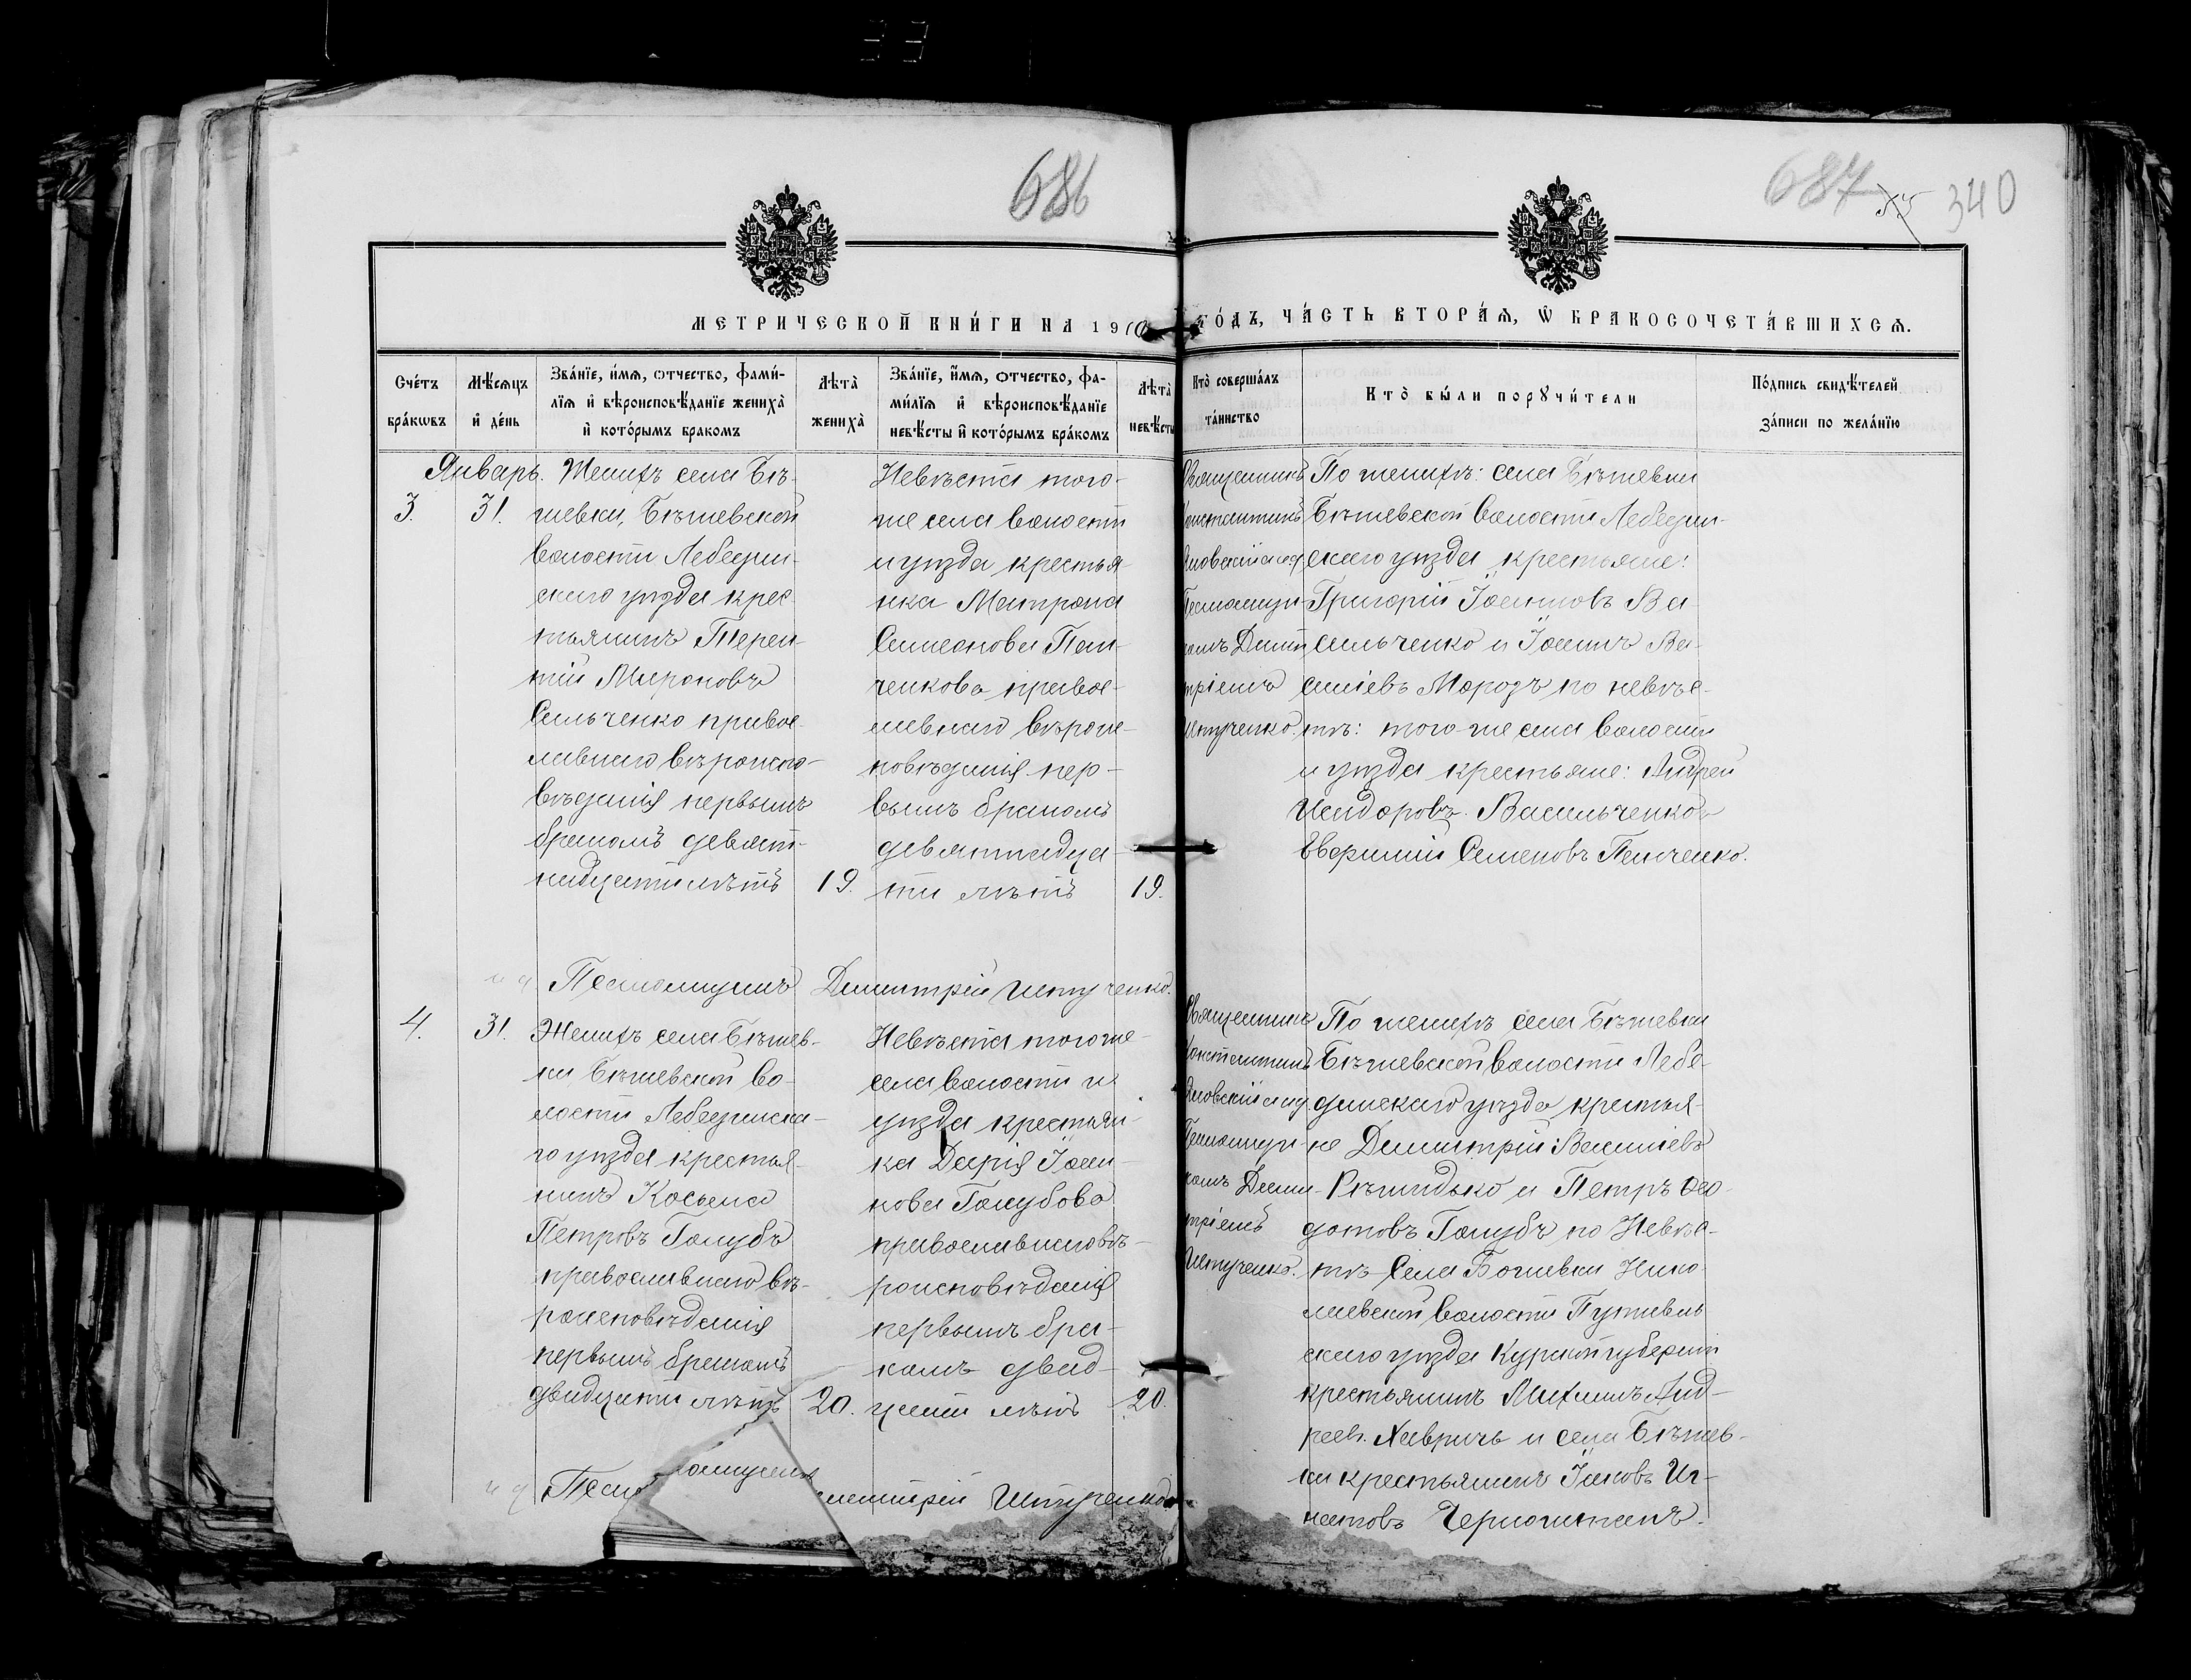 686
687
340
МЕТРИЧЕСКОЙ КНИ́ГИ НА 1910
ГО́ДЪ, ЧА́СТЬ ВТОРА́Ѧ, Ѿ БРАКОСОЧЕТА́ВШИХСѦ.
Сче́тъ бра́кѡвъ
Мѣ́сѧцъ и҆ де́нь
Зва́нїе, и҆́мѧ, ѻтчество, фами́-
лїѧ и҆ вѣроисповѣ́данїе жениха̀
и҆ кото́рымъ бракомъ
Лѣта̀ жениха̀
Зва́нїе, и҆́мѧ, ѻтчество, фа-
ми́лїѧ и҆ вѣроисповѣ́данїе
невѣ́сты и҆ кото́рымъ бра́комъ
Лѣта̀ невѣ́сты
Кто̀ соверша́лъ та́инство
Кто̀ бы́ли порꙋчи́тели
По́дпись свидѣ́телей за́писи по жела́нїю
Январь.
3.
31.
Женихъ села Бѣ-
жевки, Бѣжевской
волости Лебедин-
скаго уѣзда крес-
тьянинъ Терен-
тій Мироновъ
Сильченко правос-
лавнаго вѣроиспо-
вѣданія первымъ
бракомъ девят-
надцати лѣтъ
19.
Невѣста того-
же села волости
и уѣзда крестья-
нка Матрона
Симеонова Пан-
ченкова правос-
лавнаго вѣроис-
повѣданія пер-
вымъ бракомъ
девятнадца-
ти лѣтъ
19.
Священникъ
Константинъ
Яновскій и. д.
Псаломщи-
комъ Дими-
тріемъ
Штученко.
По женихѣ: села Бѣжевки
Бѣжевской волости Лебедин-
скаго уѣзда крестьяне:
Григорій Іоанновъ Ва-
сильченко и Іоаннъ Ва-
силіевъ Морозъ по невѣс-
тѣ: того-же села волости
и уѣзда крестьяне: Андрей
Исидоровъ Васильченко и
Семеновъ Панченко.
и д Псаломщикъ Димитрій Штученко.
4.
31.
Женихъ села Бѣжев-
ки Бѣжевской во-
лости Лебединска-
го уѣзда крестья-
нинъ Косьма
Петровъ Голубъ
православнаго вѣ-
роисповѣданія
первымъ бракомъ
двадцати лѣтъ
20.
Невѣста того же
села волости и
уѣзда крестьян-
ка Дарія Іоан-
нова Голубова
православнаго вѣ-
роисповѣданія
первымъ бра-
комъ двад-
цати лѣтъ
20.
Священникъ
Константинъ
Яновскій и. д.
Псаломщи-
комъ Дими-
тріемъ
Штученко.
По женихѣ села Бѣжевки
Бѣжевской волости Лебе-
динскаго уѣзда крестья-
не Димитрій Василіевъ
и Петръ Ѳео-
дотовъ Голубъ по Невѣс-
тѣ села Нико-
лаевской волости Путивль
скаго уѣзда Курской губерніи
крестьянинъ Михаилъ Анд-
реев. и села Бѣжев-
ки крестьянинъ Іаковъ Иг-
натовъ
и д Псаломщикъ Димитрій Штученко